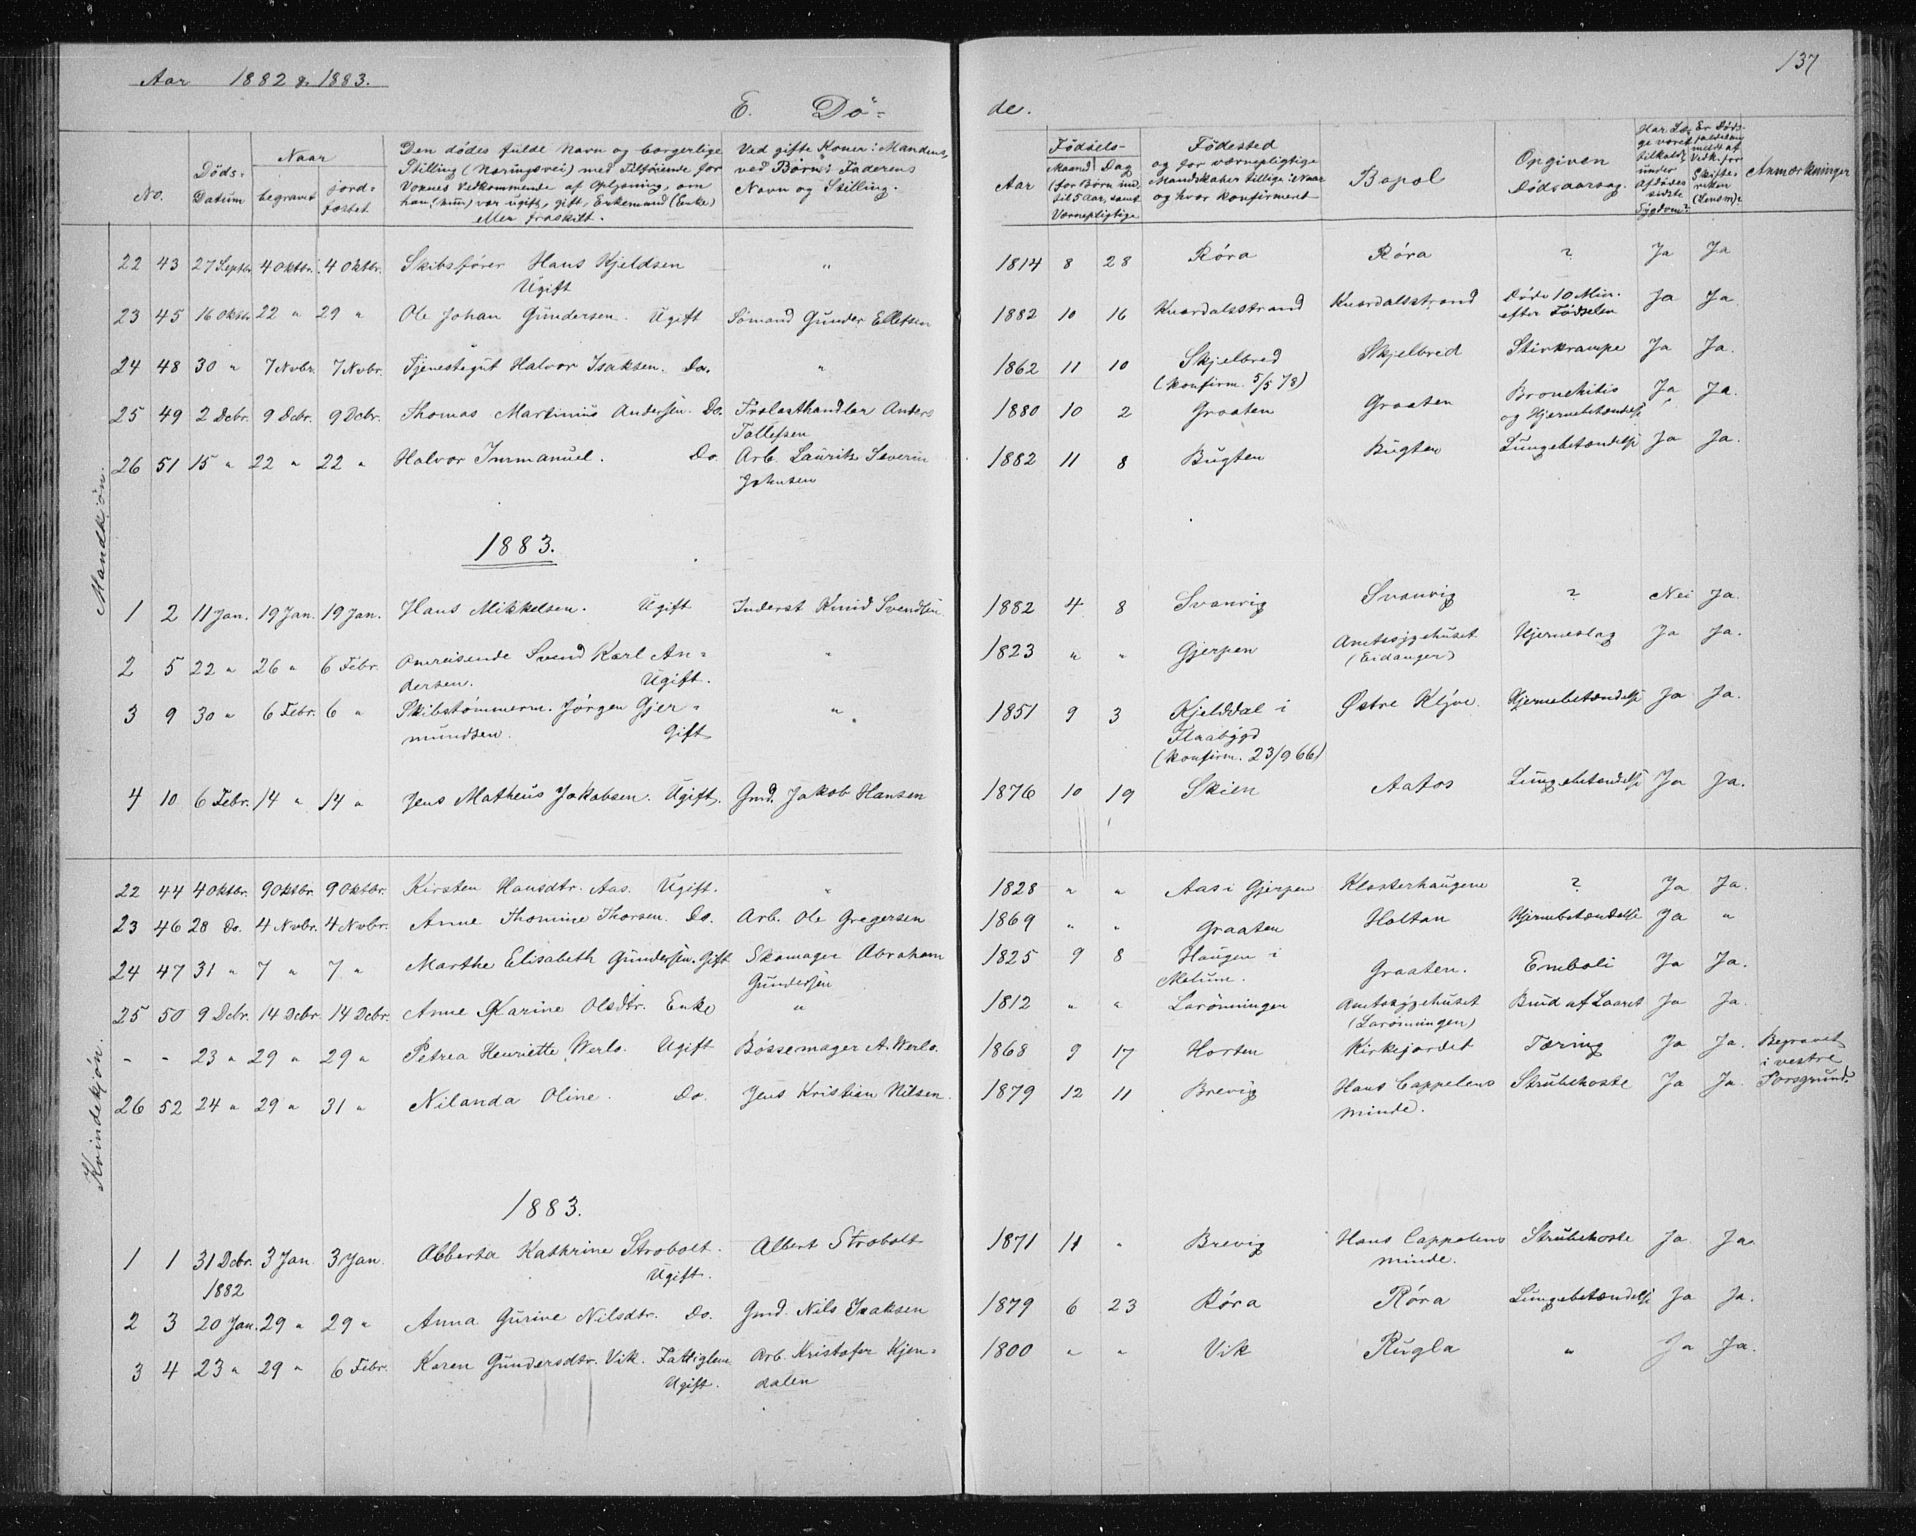 Aar 1882 & 1883.
137
E. Dø-
de.
No.
Døds-
Datum
Naar
begravet
jord-
fæstet
Den dødes fulde Navn og borgerlige
Stilling (Næringsvei) med Tilføiende for
Voxnes Vedkommende af Oplysning, om
han (hun) var ugift, gift, Enkemand (Enke)
eller fraskilt.
Ved gifte Koner: Mandens,
ved Børn: Faderens
Navn og Stilling.
Fødsels-
Aar
Maaned Dag
(for Børn ind-
til 5 Aar, samt
Værnepligtige
Fødested
og for værnepligtige
Mandskaber tillige: Naar
og hvor konfirmeret
Bopæl
Opgiven
Dødsaarsag.
Har Læ-
ge været
tilkaldt
under
Afdødes
sidste
Sygdom?
Er Døds-
faldet an-
meldt af
Vedk. for
Skifte-
retten
(Lensm)?
Anmærkninger
Mandkjøn.
22 43 27 Septbr 4 Oktbr. 4 Oktbr. Skibsfører Hans Kjeldsen " 1814 8 28 Røra Røra ? Ja Ja
Ugift
23 45 16 Oktbr 22 " 29 " Ole Johan Gundersen. Ugift Sømand Gunder Ellefsen 1882 10 16 Knardalsstrand Knardalsstrand Døde 10 Min. Ja Ja
efter Fødselen
24 48 30 " 7 Nvbr. 7 Nvbr. Tjenestegut Halvor Isaksen. Do. " 1862 11 10 Skjelbred Skjelbred Stivkrampe Ja Ja.
(konfirm. 5/5 78)
25 49 2 Dcbr. 9 Dcbr. 9 Dcbr. Thomas Martinius Andersen. Do. Trælasthandler Anders 1880 10 2 Graaten Graaten Bronchitis Ja Ja.
Tollefsen og Hjernebetændelse
26 51 15 " 22 " 22 " Halvor Immanuel. Do. Arb. Lauritz Severin 1882 11 8 Bugten Bugten Lungebetændelse Ja Ja.
Johnsen
1883.
1 2 11 Jan. 19 Jan. 19 Jan. Hans Mikkelsen. Ugift Inderst Knud Svendsen 1882 4 8 Svanvig Svanvig ? Nei Ja.
2 5 22 " 26 " 6 Febr. Omreisende Svend Karl An- " 1823 " " Gjerpen Amtssygehuset Hjerneslag Ja Ja.
dersen. Ugift. (Eidanger)
3 9 30 " 6 Febr. 6 " Skibstømmerm. Jørgen Gjer- " 1851 9 3 Kjelddal i Østre Klyve. Hjernebetændelse Ja Ja.
mundsen. Gift Flaabygd
(konfirm. 23/9 66)
4 10 6 Febr. 14 " 14 " Jens Matheus Jakobsen. Ugift. Gmd. Jakob Hansen 1876 10 19 Skien Aafos Lungebetændelse Ja Ja.
Kvindekjøn.
22 44 4 Oktbr. 9 Oktbr. 9 Oktbr. Kirsten Hansdtr. Aas. Ugift. " 1828 " " Aas i Gjerpen Klosterhaugene ? Ja Ja.
23 46 28 Do. 4 Nvbr. 4 Nvbr. Anne Thomine Thorsen. Do. Arb. Ole Gregersen 1869 " " Graaten Holtan Hjernebetændelse Ja "
24 47 31 " 7 " 7 " Marthe Elisabeth Gundersen. Gift Skomager Abraham 1825 9 8 Haugen i Graaten. Emboli Ja Ja.
Gundersen Melum.
25 50 9 Dcbr. 14 Dcbr. 14 Dcbr. Anne Karine Olsdtr. Enke " 1812 " " Larønningen Amtssygehuset Brud af Laaret Ja Ja.
(Larønningen)
- - 23 " 29 " 29 " Petrea Henriette Werlo. Ugift Bøssemager A. Werlo. 1868 9 17 Horten Kirkejordet Tæring Ja Ja. Begravet
i vestre
Porsgrund.
26 52 24 " 29 " 31 " Nilanda Oline. Do. Jens Kristian Nilsen. 1879 12 11 Brevig Hans Cappelens Strubehoste Ja Ja.
minde.
1883.
1 1 31 Dcbr. 3 Jan. 3 Jan. Abberta Kathrine Strobolt. Albert Strobolt 1871 11 " Brevig Hans Cappelens Strubehoste Ja Ja.
1882 Ugift. minde.
2 3 20 Jan. 29 " 29 " Anna Gurine Nilsdtr. Do. Gmd. Nils Isaksen 1879 6 23 Røra Røra Lungebetændelse Ja Ja.
3 4 23 " 29 " 6 Febr. Karen Gundersdtr. Vik. Fattiglem Arb. Kristofer Kjen- 1800 " " Vik Rugla " Ja Ja.
Ugift. dalen